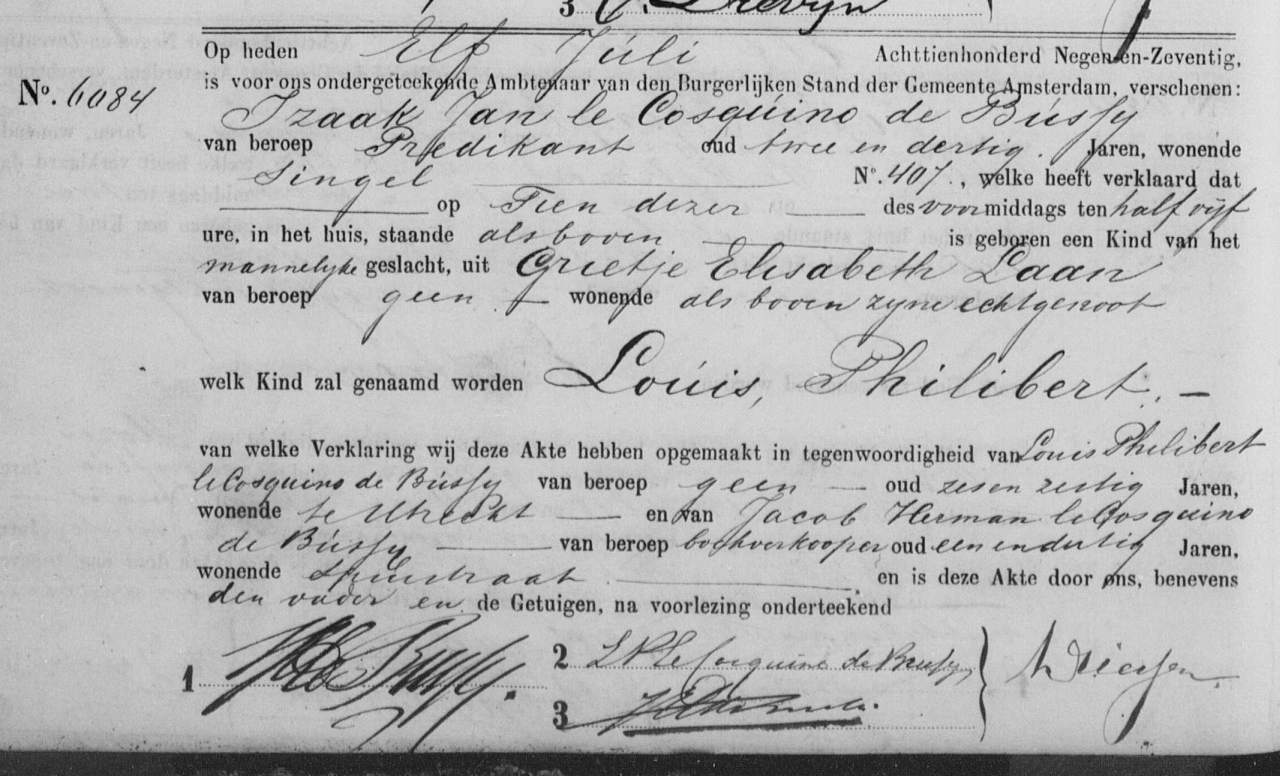 3
Op heden Elf Juli Achttienhonderd Negen-en-Zeventig,
is voor ons ondergeteekende Ambtenaar van den Burgerlijken Stand der Gemeente Amsterdam, verschenen:
No. 6084
Izaak Jan le Cosquino de Bussy
van beroep Predikant oud twee en dertig. Jaren, wonende
Singel No. 407, welke heeft verklaard dat
op Tien dezer des voormiddags ten half vijf
ure, in het huis, staande als boven is geboren een Kind van het
mannelijke geslacht, uit Grietje Elisabeth Laan
van beroep geen wonende als boven zyne echtgenoot
welk Kind zal genaamd worden Louis, Philibert. —
van welke Verklaring wij deze Akte hebben opgemaakt in tegenwoordigheid van Louis Philibert
le Cosquino de Bussy van beroep geen — oud zes en zestig Jaren,
wonende te Utrecht — en van Jacob Herman le Cosquino
de Bussy — van beroep boekverkooper oud een en dertig Jaren,
wonende Spuistraat — en is deze Akte door ons, benevens
den vader en de Getuigen, na voorlezing onderteekend
1
2 L P le Cosquino de Bussy
3